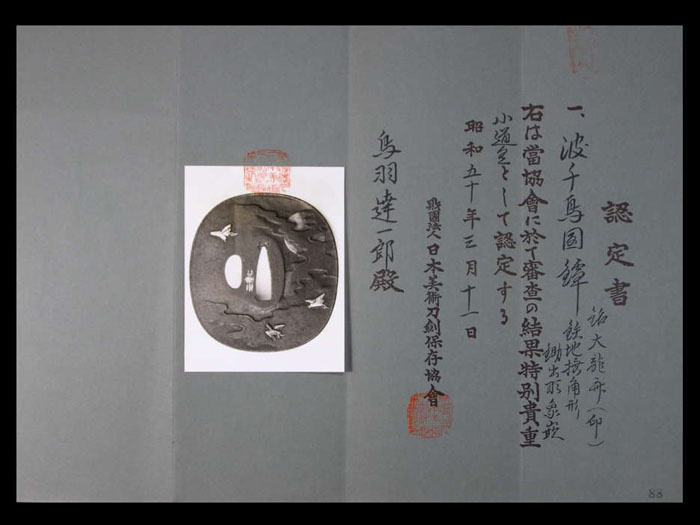 認定書
一、波千鳥図鐔
銘大龍（印）
鉄地撫角形
鋤出彫象嵌
右は當協會に於て審査の結果特別貴重
小道具として認定する
昭和五十年三月十一日
財團法人日本美術刀劍保存協會
鳥羽達一郎殿
88